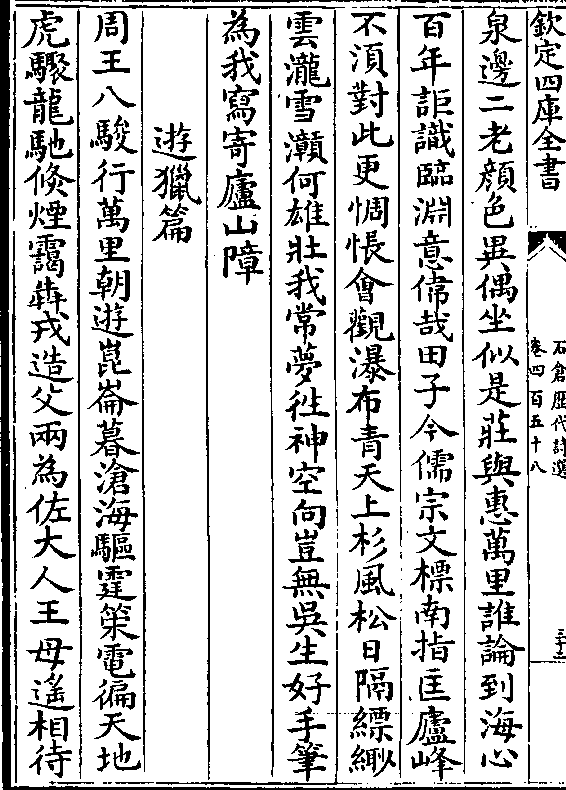 欽定四庫全書
石倉歴代詩選
卷四百五十八
三十三
泉邊二老顔色異偶坐似是莊與惠萬里誰論到海心
百年詎識臨淵意偉哉田子今儒宗文標南指匡廬峰
不湏對此更惆悵會觀瀑布青天上杉風松日隔縹緲
雲瀧雪灝何雄壯我常夢徃神空向豈無吳生好手筆
為我寫寄廬山障
遊獵篇
周王八駿行萬里朝遊崑崙暮滄海驅霆策電徧天地
虎驟龍馳倐煙靄犇戎造父兩為佐大人王母遙相待